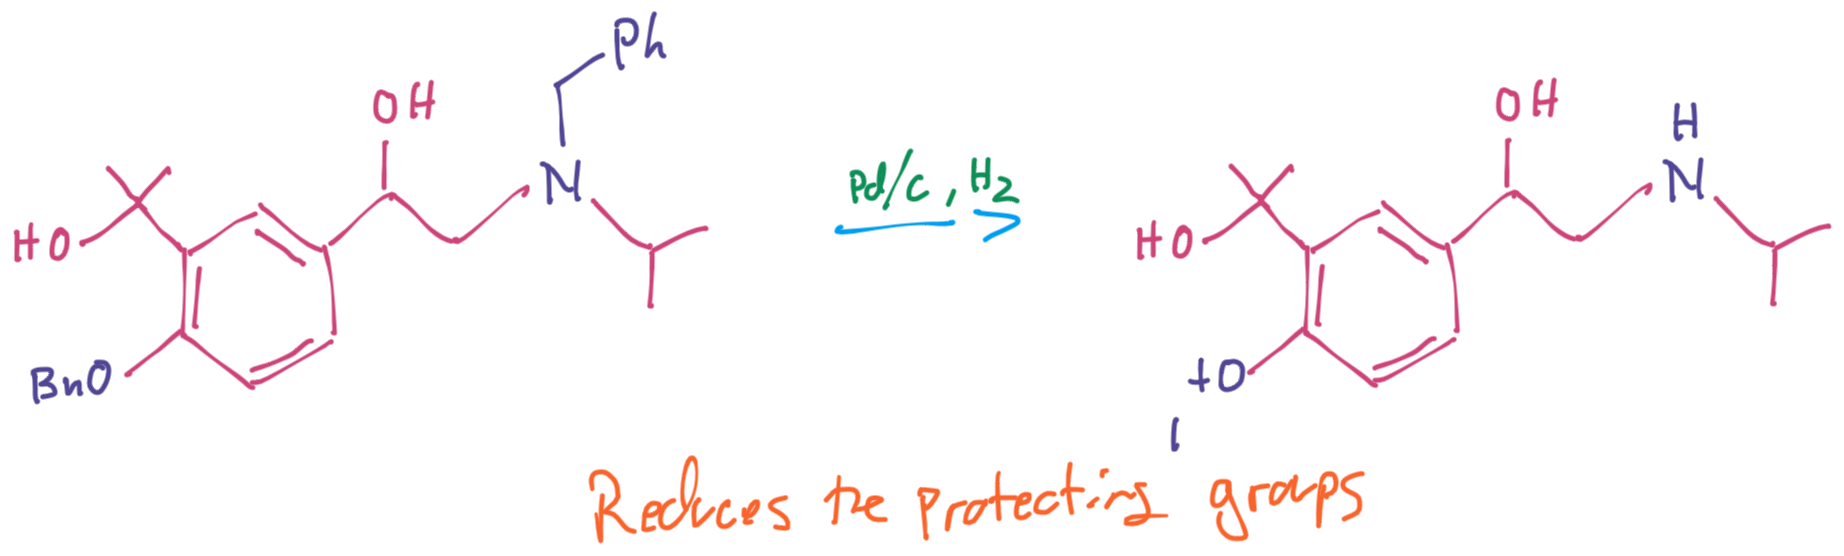 Ph
OH
N
HO
BnO
Pd/C, H2
OH
H
N
HO
Reduces the protecting groups